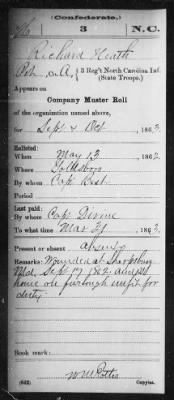 (Confederate.)
3
N.C.
Richard Heath
Pvt, Co. A, 3 Reg't North Carolina Inf.
(State Troops.)
Appears on
Company Muster Roll
of the organization named above,
for Sept & Oct, 1863.
Enlisted:
When May 13, 1862.
Where Goldsboro
By whom Capt. Best
Period
Last paid:
By whom Capt. Divine
To what time Mar 31, 1863.
Present or absent absent
Remarks: Wounded at Sharpsburg
Md. Sept 17 1862 absent
home on furlough unfit for
duty.
Book mark:
(642)
Copyist.